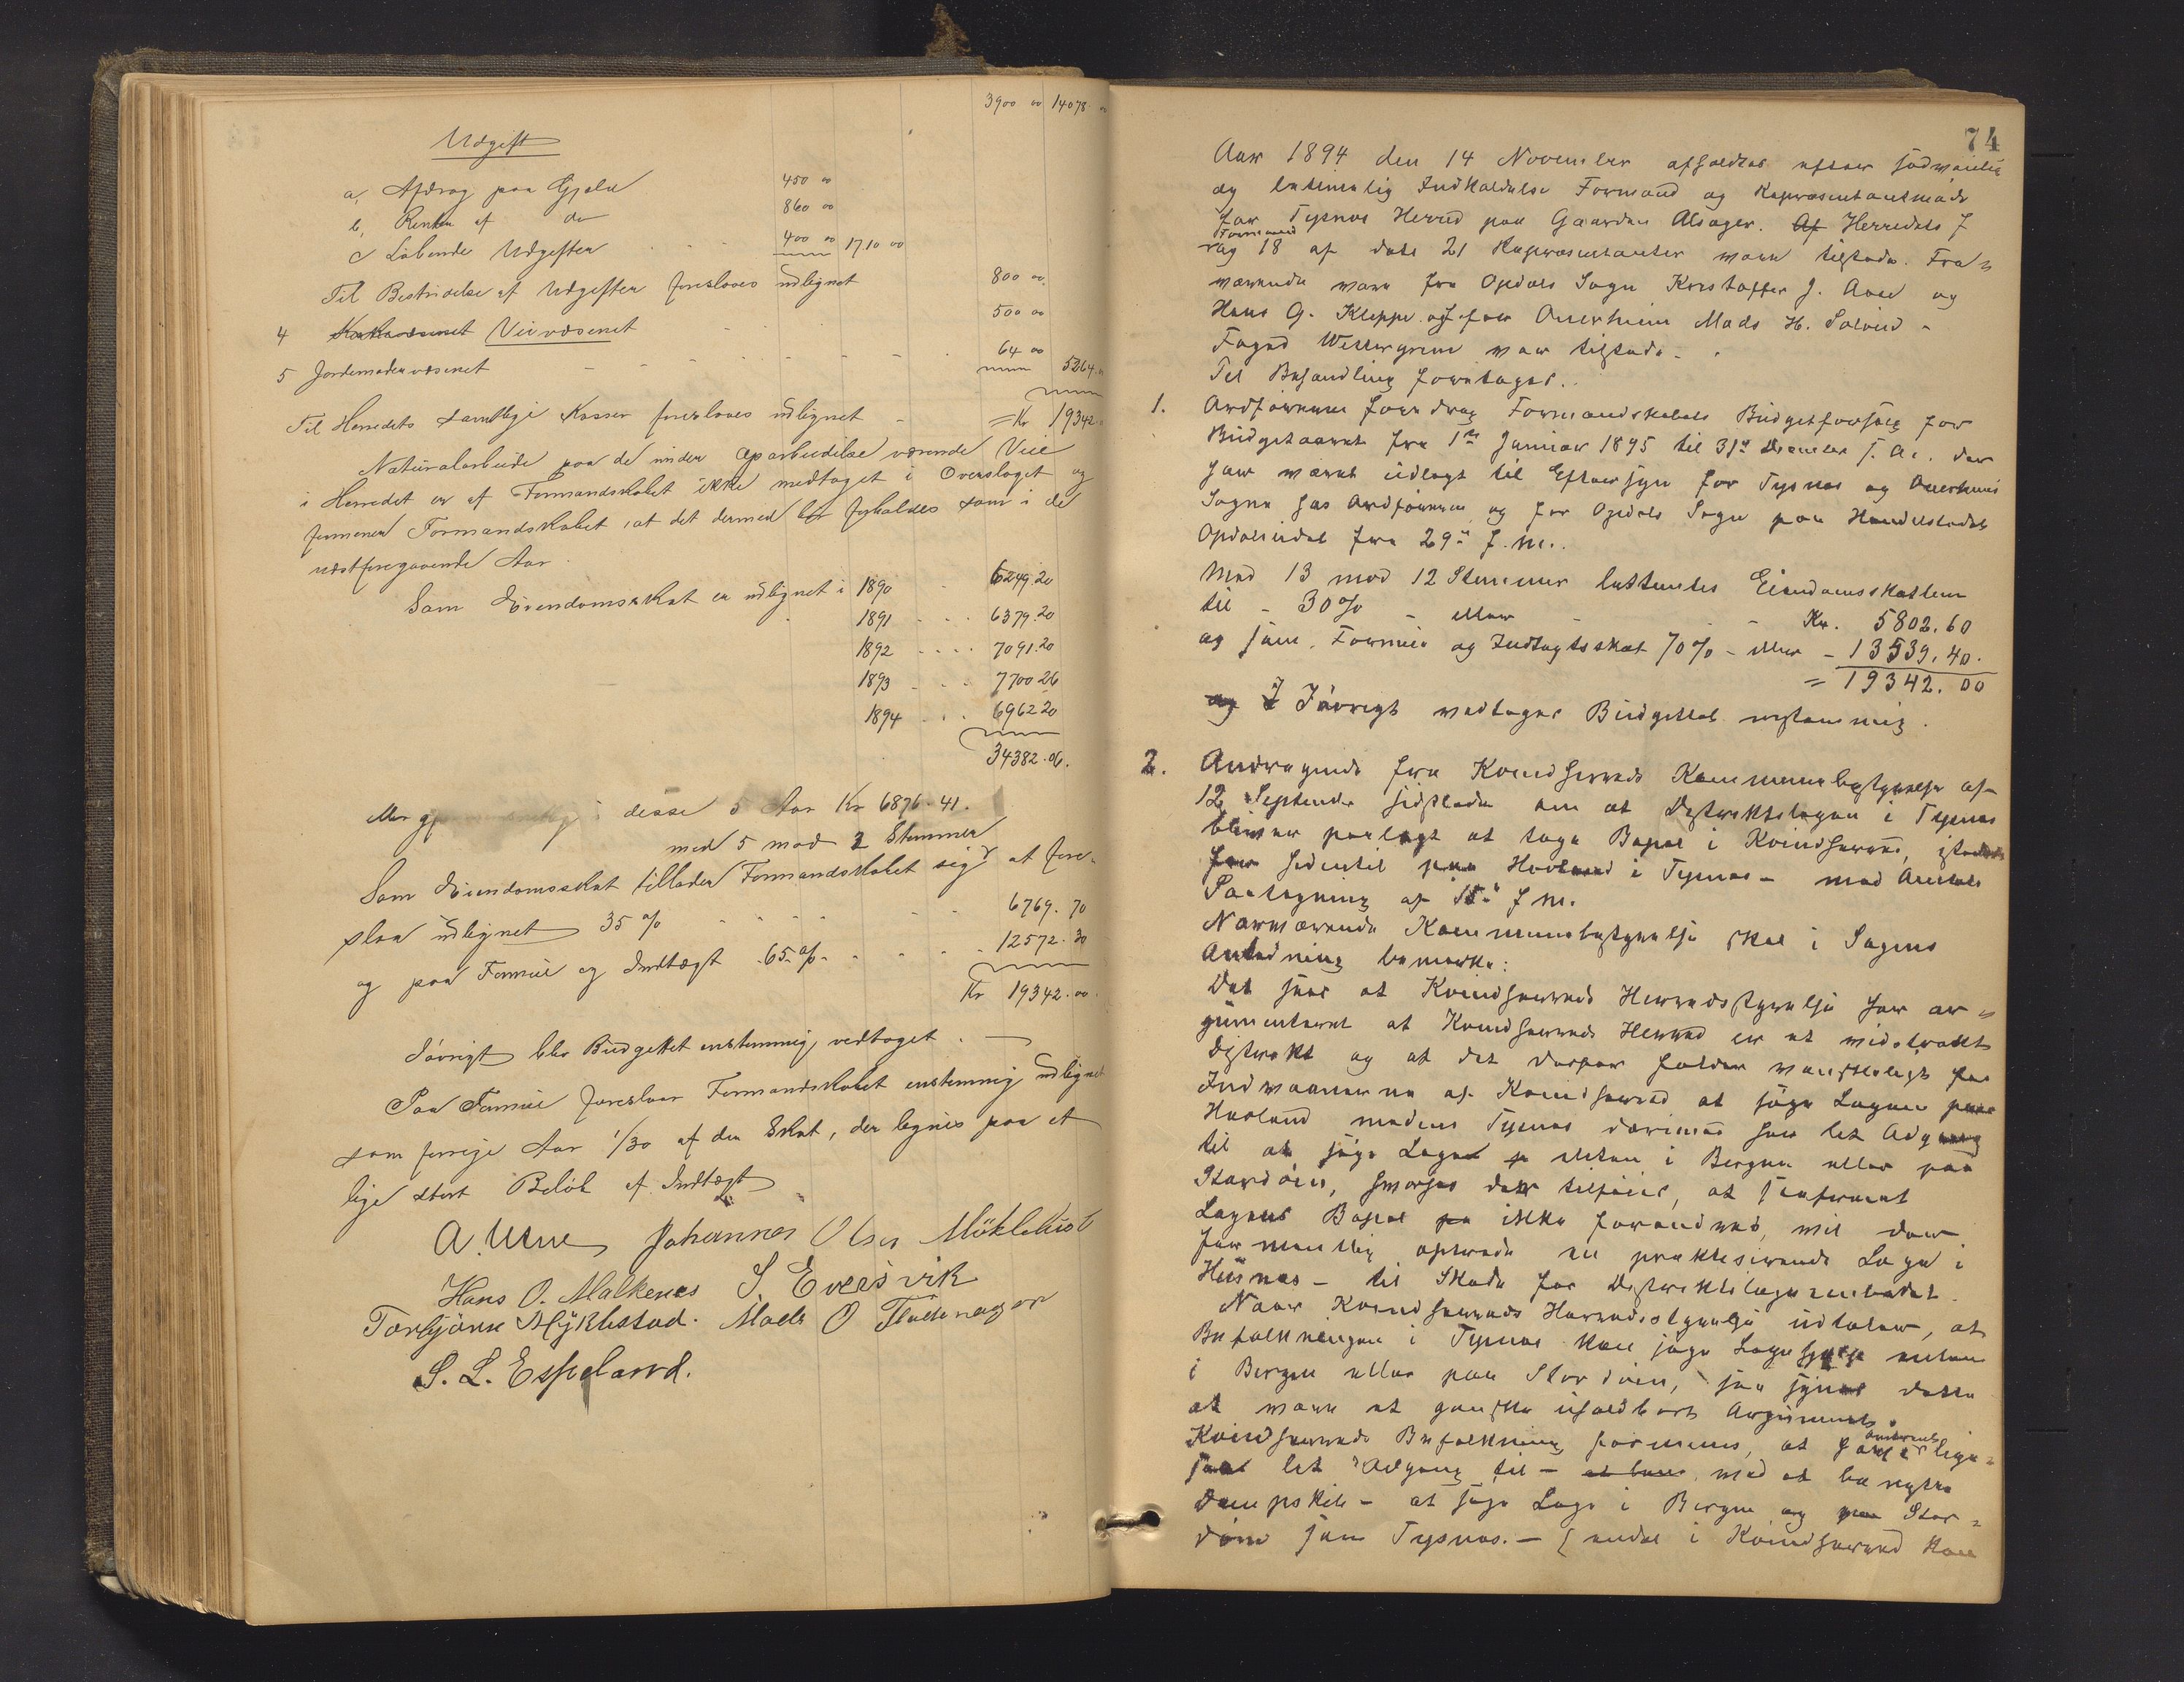 3900 00 14078
Udgift
a, Afdrag paa Gjeld 450 00
b, Renter af do 860 00
c Löbende Udgifter 400 00 1710 00
Til Bestridelse af Udgifter foreslaaes udlignet 800 00
4 Veivæsenet 500 00
5 Jordemodervæsenet 64 00 5264
Til Herredets samtlige Kasser foreslaaes udlignet = Kr 19342
Naturalarbeide paa de under Oparbeidelse værende Veie
i Herredet er af Formandskabet ikke medtaget i Overslaget og
formener Formandskabet, at det dermed forholdes som i de
næstforegaaende Aar.
Som Eiendomsskat er udlignet i 1890 6249.20
1891 6379.20
1892 7091.20
1893 7700 26
1894 6962 20
34382.06.
disse 5 Aar Kr 6876.41.
med 5 mod 2 Stemmer
Som Eiendomsskat tillader Formandskabet sig at fore-
slaa udlignet 35 % 6769.70
og paa Formue og Indtægt 65 % 12572.30
Kr 19342.00.
Iövrigt blev Budgettet enstemmig vedtaget.
Paa Formue foreslaar Formandskabet enstemmig udlignet
som forrige Aar 1/30 af den Skat, der lignes paa et
lige stort Belöb af Indtægt
A. Uene Johannes Olsen Möklebust
Hans O. Malkenes S Eversvik
Torbjörn Myklestad. Mads O
S. L. Espeland.
74
Aar 1894 den 14 November afholdtes efter sedvanlig
og betimelig Indkaldelse Formand og Repræsentantmöde
for Tysnes Herred paa Gaarden Alsager. Af Herredets 7
Formænd
og 18 af dets 21 Repræsentanter vare tilstede. Fra-
værende vare fra Opdals Sogn Kristoffer J. Aase og
Hans G. Kleppe og for Onerheim Mads H. Solvid -
Foged Wettergren var tilstede -
Til Behandling foretoges.
1. Ordföreren foredrog Formandskabets Budgetforslag for
Budgetaaret fra 1ste Januar 1895 til 31te December s. A. der
har været udlagt til Eftersyn for Tysnes og Onerheims
Sogne hos Ordföreren og for Opdals Sogn paa Handelsstedet
Opdalsudal fra 29de f. M.
Med 13 mod 12 Stemmer bestemtes Eiendomsskatten
til - 30 % - eller - Kr. 5802.60
og som Formue og Indtægtsskat 70 % - eller - 13539.40.
= 19342.00
og I Iövrigt vedtoges Budgettet enstemmig.
2. Andragende fra Kvindherreds Kommunebestyrelse af
12 September sidstleden om at Distriktslægen i Tysnes
bliver paalagt at tage Bopæl i Kvindherred, istedet
for hidentil paa Hovland i Tysnes - med Amtets
Paategning af 15de f M.
Nærværende Kommunebestyrelse skal i Sagens
Anledning bemærke:
Det sees at Kvindherreds Herredsstyrelse har ar-
gumenteret at Kvindherreds Herred er et vidstrakt
Distrikt og at det derfor falder vanskeligt for
Indvaanerne af Kvindherred at söge Lægen paa
Hovland medens Tysnes derimod har let Adgang
til at söge Læge enten i Bergen eller paa
Stordöen, hvorhos der tilföies, at saafremt
Lægens Bopæl ikke forandres, vil der
formentlig optræde en praktiserende Læge i
Husnes - til Skade for Distriktslægeembedet.
Naar Kvindherreds Herredsstyrelse udtaler, at
Befolkningen i Tysnes kan söge Lægehjælp enten
i Bergen eller paa Stordöen, saa synes dette
at være et ganske uholdbart Argument.
Kvindherreds Befolkning formenes, at have
omtrent
lige-
saa let Adgang til - med at benytte
Dampskib - at söge Læge i Bergen og paa Stor-
döen som Tysnes. - (endel i Kvindherred kan